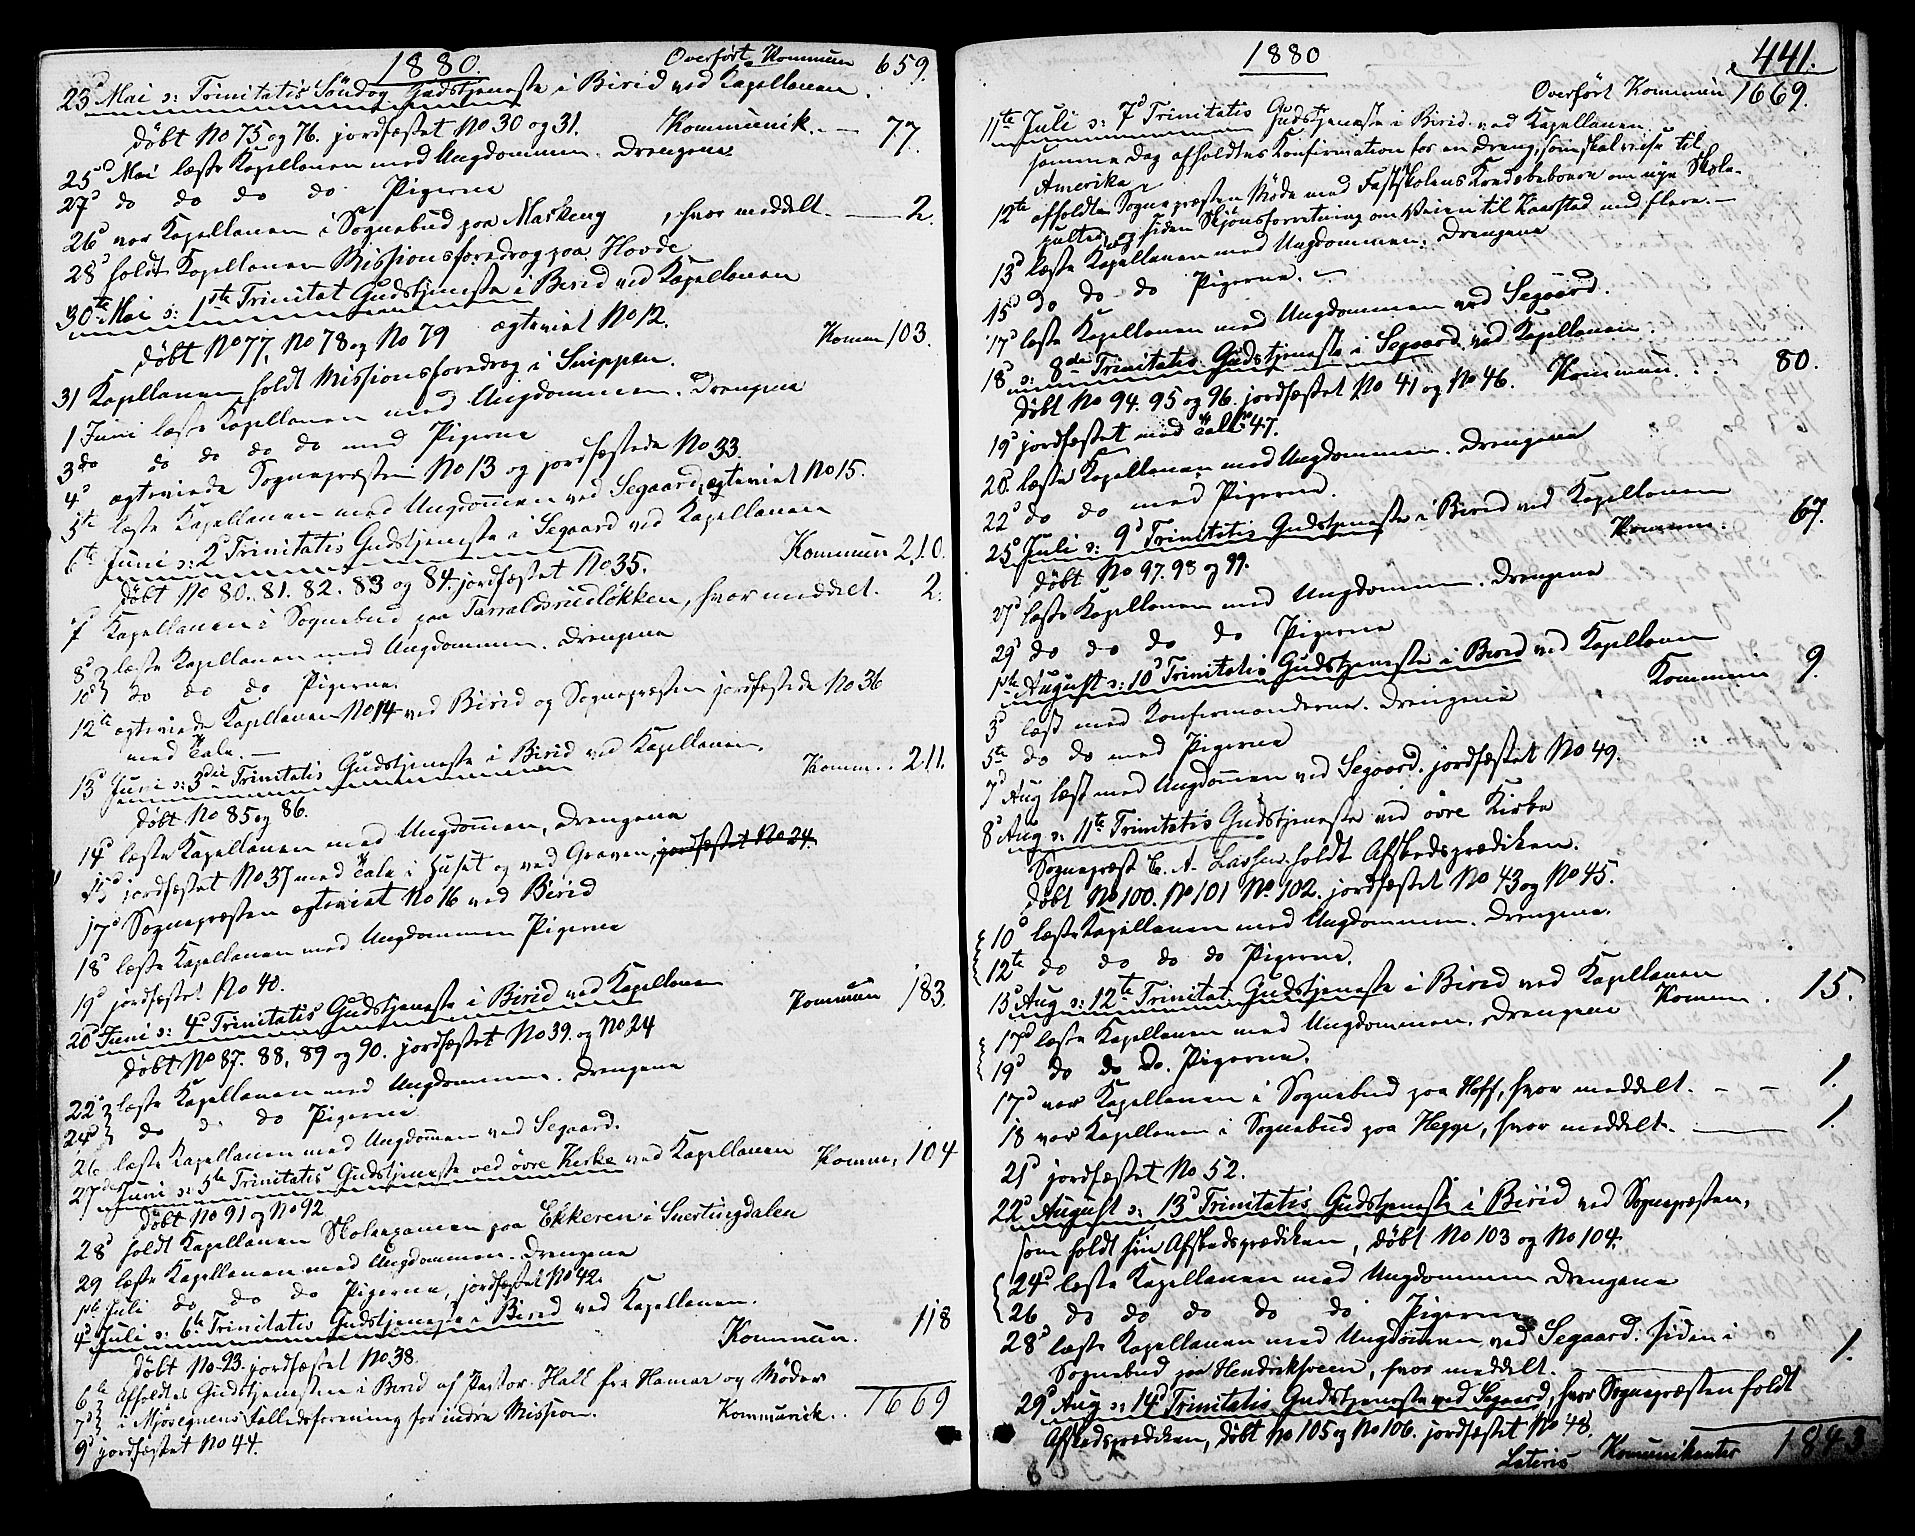 1880
Overført Kommun 659.
25d Mai ɔ: Trinitatis Søndag Gudstjeneste i Birid ved Kapellanen.
døbt No 75 og 76. jordfæstet No 30 og 31. Kommunik. — 77.
25d Mai læste Kapellanen med Ungdommen. Drengene
27d do do do do Pigerne
26d var Kapellanen i Sognebud paa Maskeng, hvor meddelt. — 2.
28d holdt Kapellanen Missionsforedrag paa Hovde
30te Mai ɔ: 1ste Trinitat Gudstjeneste i Birid ved Kapellanen
døbt No 77, No 78 og No 79 ægteviet No 12. Komm 103.
31 Kapellanen holdt Missionsforedrag i Snippen.
1 Juni læste Kapellanen med Ungdommen. Drengene
3do do do do do med Pigerne
4d ægteviede Sognepræsten No 13 og jordfæstede No 33.
5te læste Kapellanen med Ungdommen ved Segaard, ægteviet No 15.
6te Juni ɔ: 2d Trinitatis Gudstjeneste i Segaard ved Kapellanen
døbt No 80. 81. 82. 83 og 84. jordfæstet No 35. Kommun 210.
7 Kapellanen i Sognebud paa Tarraldsrudløkken, hvor meddelt. 2.
8d læste Kapellanen med Ungdommen. Drengene
10d do do do Pigerne.
12te ægteviede Kapellanen No 14 ved Birid og Sognepræsten jordfæstede No 36
med Tale. —
13d Juni ɔ: 3die Trinitatis Gudstjeneste i Birid ved Kapellanen.
døbt No 85 og 86. Komm.. 211.
14d læste Kapellanen med Ungdommen, Drengene
15d jordfæstet No 37 med Tale i Huset og ved Graven, jordfæstet No 24.
17d Sognepræsten ægteviet No 16 ved Birid
18d læste Kapellanen med Ungdommen Pigerne
19d jordfæstet No 40.
20d Juni ɔ: 4d Trinitatis Gudstjeneste i Birid ved Kapellanen
døbt No 87. 88, 89 og 90. jordfæstet No 39. og No 24 Kommun 183.
22d læste Kapellanen med Ungdommen. Drengene
24d do do do Pigerne
26 læste Kapellanen med Ungdommen ved Segaard.
27de Juni ɔ: 5te Trinitatis Gudstjeneste ved øvre Kirke ved Kapellanen Komm. 104
døbt No 91 og No 92
28d holdt Kapellanen Skoleexamen paa Ekkeren i Snertingdalen
29 læste Kapellanen med Ungdommen. Drengene
1ste Juli do do do Pigerne, jordfæstet No 42.
4d Juli ɔ: 6te Trinitatis Gudstjeneste i Birid ved Kapellanen.
døbt No 93. jordfæstet No 38. Kommun. 118
6te Afholdtes Gudstjenesten i Birid af Pastor Hall fra Hamar og Møder
7d i Mjøsegnens Fællesforening for indre Mission. Kommunik.. 1669
9d jordfæstet No 44.
1880
441.
Overført Kommun 1669.
11te Juli ɔ: 7d Trinitatis Gudstjeneste i Birid ved Kapellanen
samme Dag afholdtes Konfirmation for en Dreng, som skal reise til
Amerika
12te afholdte Sognepræsten Møde med Fastskolens Kredsbeboere om nye Skole-
pulter, og siden Skjønsforretning om Veien til Kaarstad med flere. —
13d læste Kapellanen med Ungdommen. Drengene
15d do do do Pigerne. —
17d læste Kapellanen med Ungdommen ved Segaard.
18d ɔ: 8de Trinitatis Gudstjeneste i Segaard ved Kapellanen.
døbt No 94. 95 og 96. jordfæstet No 41 og No 46. Kommun... 80.
19d jordfæstet med Tale No 47.
20. læste Kapellanen med Ungdommen. Drengene
22d do do med Pigerne.
25d Juli ɔ: 9d Trinitatis Gudstjeneste i Birid ved Kapellanen
døbt No 97. 98 og 99. Kommun. 67.
27d læste Kapellanen med Ungdommen. Drengene
29d do do do do Pigerne
1ste August ɔ: 10d Trinitatis Gudstjeneste i Birid ved Kapellanen
Kommun 9.
3d læst med Konfirmanderne. Drengene
5te do do med Pigerne
7d Aug læst med Ungdommen ved Segaard. jordfæstet No 49.
8d Aug ɔ: 11te Trinitatis Gudstjeneste ved øvre Kirke
Sognepræst E. A. Lassen holdt Afskedsprædiken.
døbt No 100. No 101 No 102. jordfæstet No 43 og No 45.
10d læste Kapellanen med Ungdommen. Drengene.
12te do do do do Pigerne.
15d Aug ɔ: 12te Trinitat. Gudstjeneste i Birid ved Kapellanen
Komm. 15.
17d læste Kapellanen med Ungdommen. Drengene
19d do do do. Pigerne.
17d var Kapellanen i Sognebud paa Hoff, hvor meddelt. — — 1.
18 var Kapellanen i Sognebud paa Hegge, hvor meddelt. — 1.
21d jordfæstet No 52.
22d August ɔ: 13d Trinitatis Gudstjeneste i Birid ved Sognepræsten,
som holdt sin Afskedsprædiken, døbt No 103 og No 104.
24d læste Kapellanen med Ungdommen Drengene
26 do do do do do Pigerne
28d læste Kapellanen med Ungdommen ved Segaard. siden i
Sognebud paa Hendrikhveem, hvor meddelt. 1.
29d Aug ɔ: 14d Trinitatis Gudstjeneste ved Segaard, hvor Sognepræsten holdt
Afskedsprædiken, døbt No 105 og No 106. jordfæstet No 48.
Lateris Kommunikanter 1843